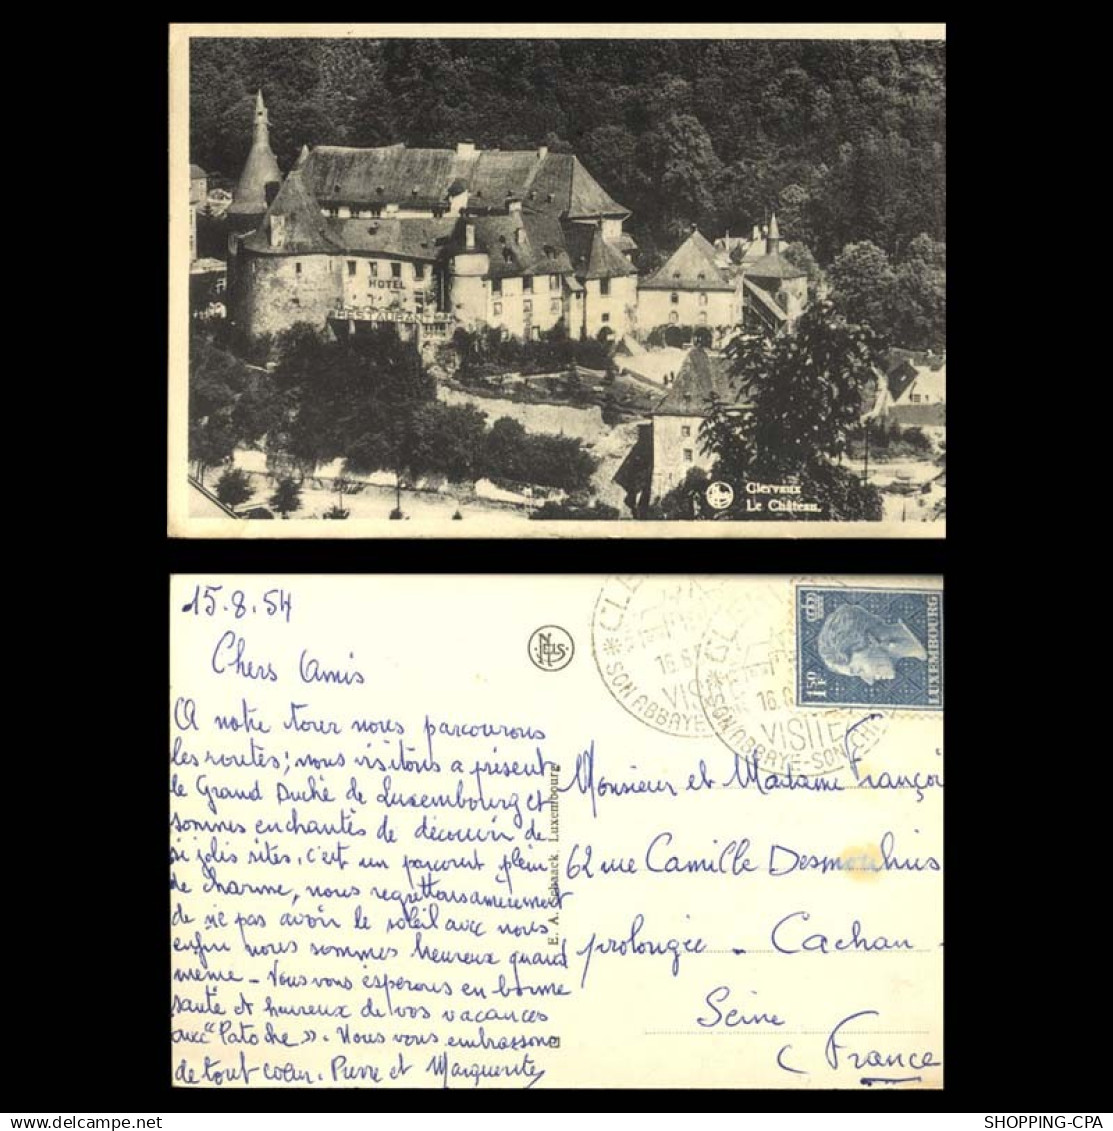 HOTEL
RESTAURANT
Clervaux
Le Château.
15.8.54
Chers Amis
A notre tour nous parcourons
les routes; nous visitons a présent
le Grand Duché de Luxembourg et
sommes enchantés de découvrir de
si jolis sites. c'est un parcourt plein
de charme, nous regrettons amèrement
de ne pas avoir le soleil avec nous
enfin nous sommes heureux quand
même - Nous vous espérons en bonne
santé et heureux de vos vacances
avec "Patoche". Nous vous embrassons
de tout coeur. Pierre et Marguerite
NELS
E. A. Schaack, Luxembourg
SON ABBAYE
16.
VISITE
SON ABBAYE-SON
1F50
LUXEMBOURG
Monsieur et Madame Françoi
62 rue Camille Desmoulins
prolongée - Cachan
Seine
(France
SHOPPING-CPA